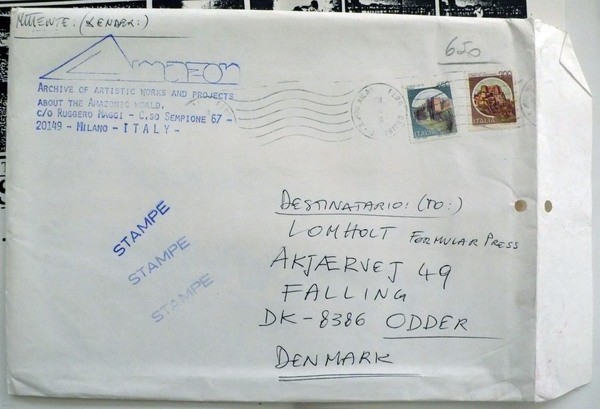 MITTENTE: (SENDER:)
Amazon
ARCHIVE OF ARTISTIC WORKS AND PROJECTS
ABOUT THE AMAZONIC WORLD.
C/O RUGGERO MAGGI - C.SO SEMPIONE 67 -
20149 - MILANO - ITALY -
650
ITALIA
ITALIA
STAMPE
STAMPE
STAMPE
DESTINATARIO: (TO:)
LOMHOLT FORMULAR PRESS
AKJÆRVEJ 49
FALLING
DK-8386 ODDER
DENMARK